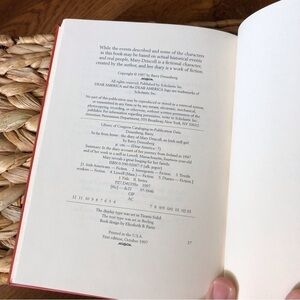 While the events described and some of the characters
in this book may be based on actual historical events
and real people, Mary Driscoll is a fictional character,
created by the author, and her diary is a work of fiction.
Copyright © 1997 by Barry Denenberg.
All rights reserved. Published by Scholastic Inc.
DEAR AMERICA and the DEAR AMERICA logo are trademarks of
Scholastic Inc.
No part of this publication may be reproduced, or stored in a retrieval system,
or transmitted in any form or by any means, electronic, mechanical,
photocopying, recording, or otherwise, without written permission of the
publisher. For information regarding permission, write to Scholastic Inc.,
Attention: Permissions Department, 555 Broadway, New York, NY 10012.
Library of Congress Cataloging-in-Publication Data
Denenberg, Barry.
So far from home : the diary of Mary Driscoll an Irish mill girl
by Barry Denenberg.
p. cm. — (Dear America)
Summary: In the diary account of her journey from Ireland in 1847
and of her work in a mill in Lowell, Massachusetts,
Mary reveals a great longing for her family.
PZ7.D4135So 1997
[Fic]
CIP
AC
The display type was set in
The text type was set in
Book design by Elizabeth B. Parisi
Printed in the U.S.A.
First edition, October 1997
37